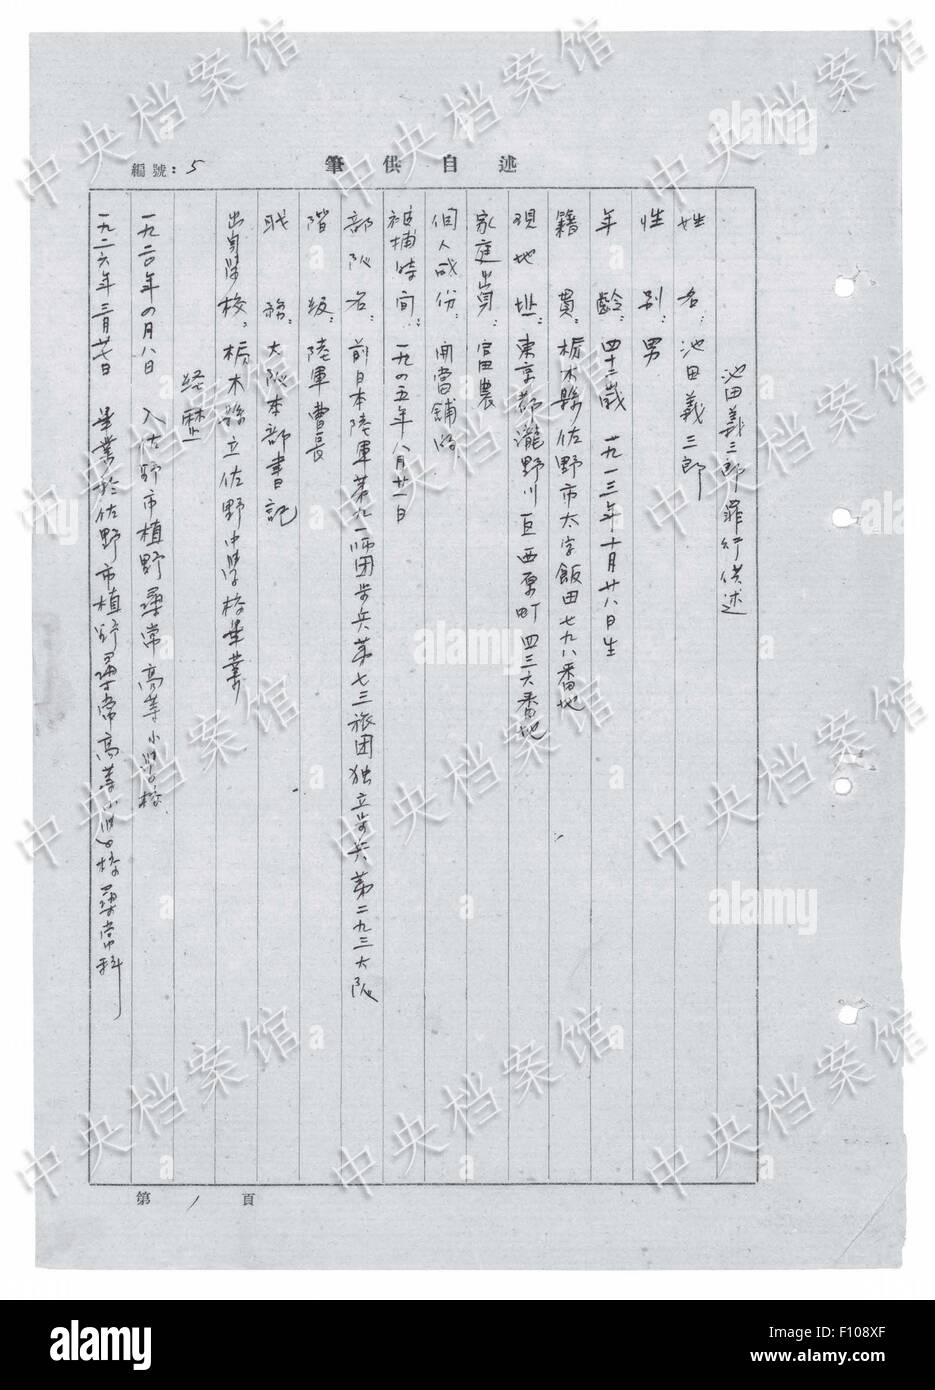 述自供筆
編號：5
池田義三郎罪行供述
姓名：池田義三郎
性別：男
年齡：四十二歲 一九一三年十月廿八日生
籍貫：栃木縣佐野市大字飯田七九八番地
現地址：東京都瀧野川區西原町四三六番地
家庭出身：富農
個人成份：開當舖的
被捕時間：一九四五年八月廿一日
部隊名：前日本陸軍第九一師団步兵第七三旅団独立步兵第二九三大隊
階級：陸軍曹長
職務：大隊本部書記
出身學校：栃木縣立佐野中學校畢業
経歷
一九二〇年四月八日 入佐野市植野尋常高等小學校
一九二六年三月廿七日 畢業於佐野市植野尋常高等小學校尋常科
第1頁
中央档案馆
alamy
a
alamy
Image ID: F108XF
www.alamy.com